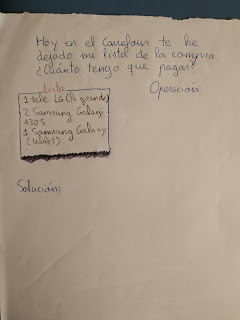 Hoy en el Carrefour te he
dejado mi lista de la compra
¿Cuánto tengo que pagar?
Lista
Operación
1 tele LG (la grande)
2 Samsung Galaxy
A30S
1 Samsung Galaxy
Solución: